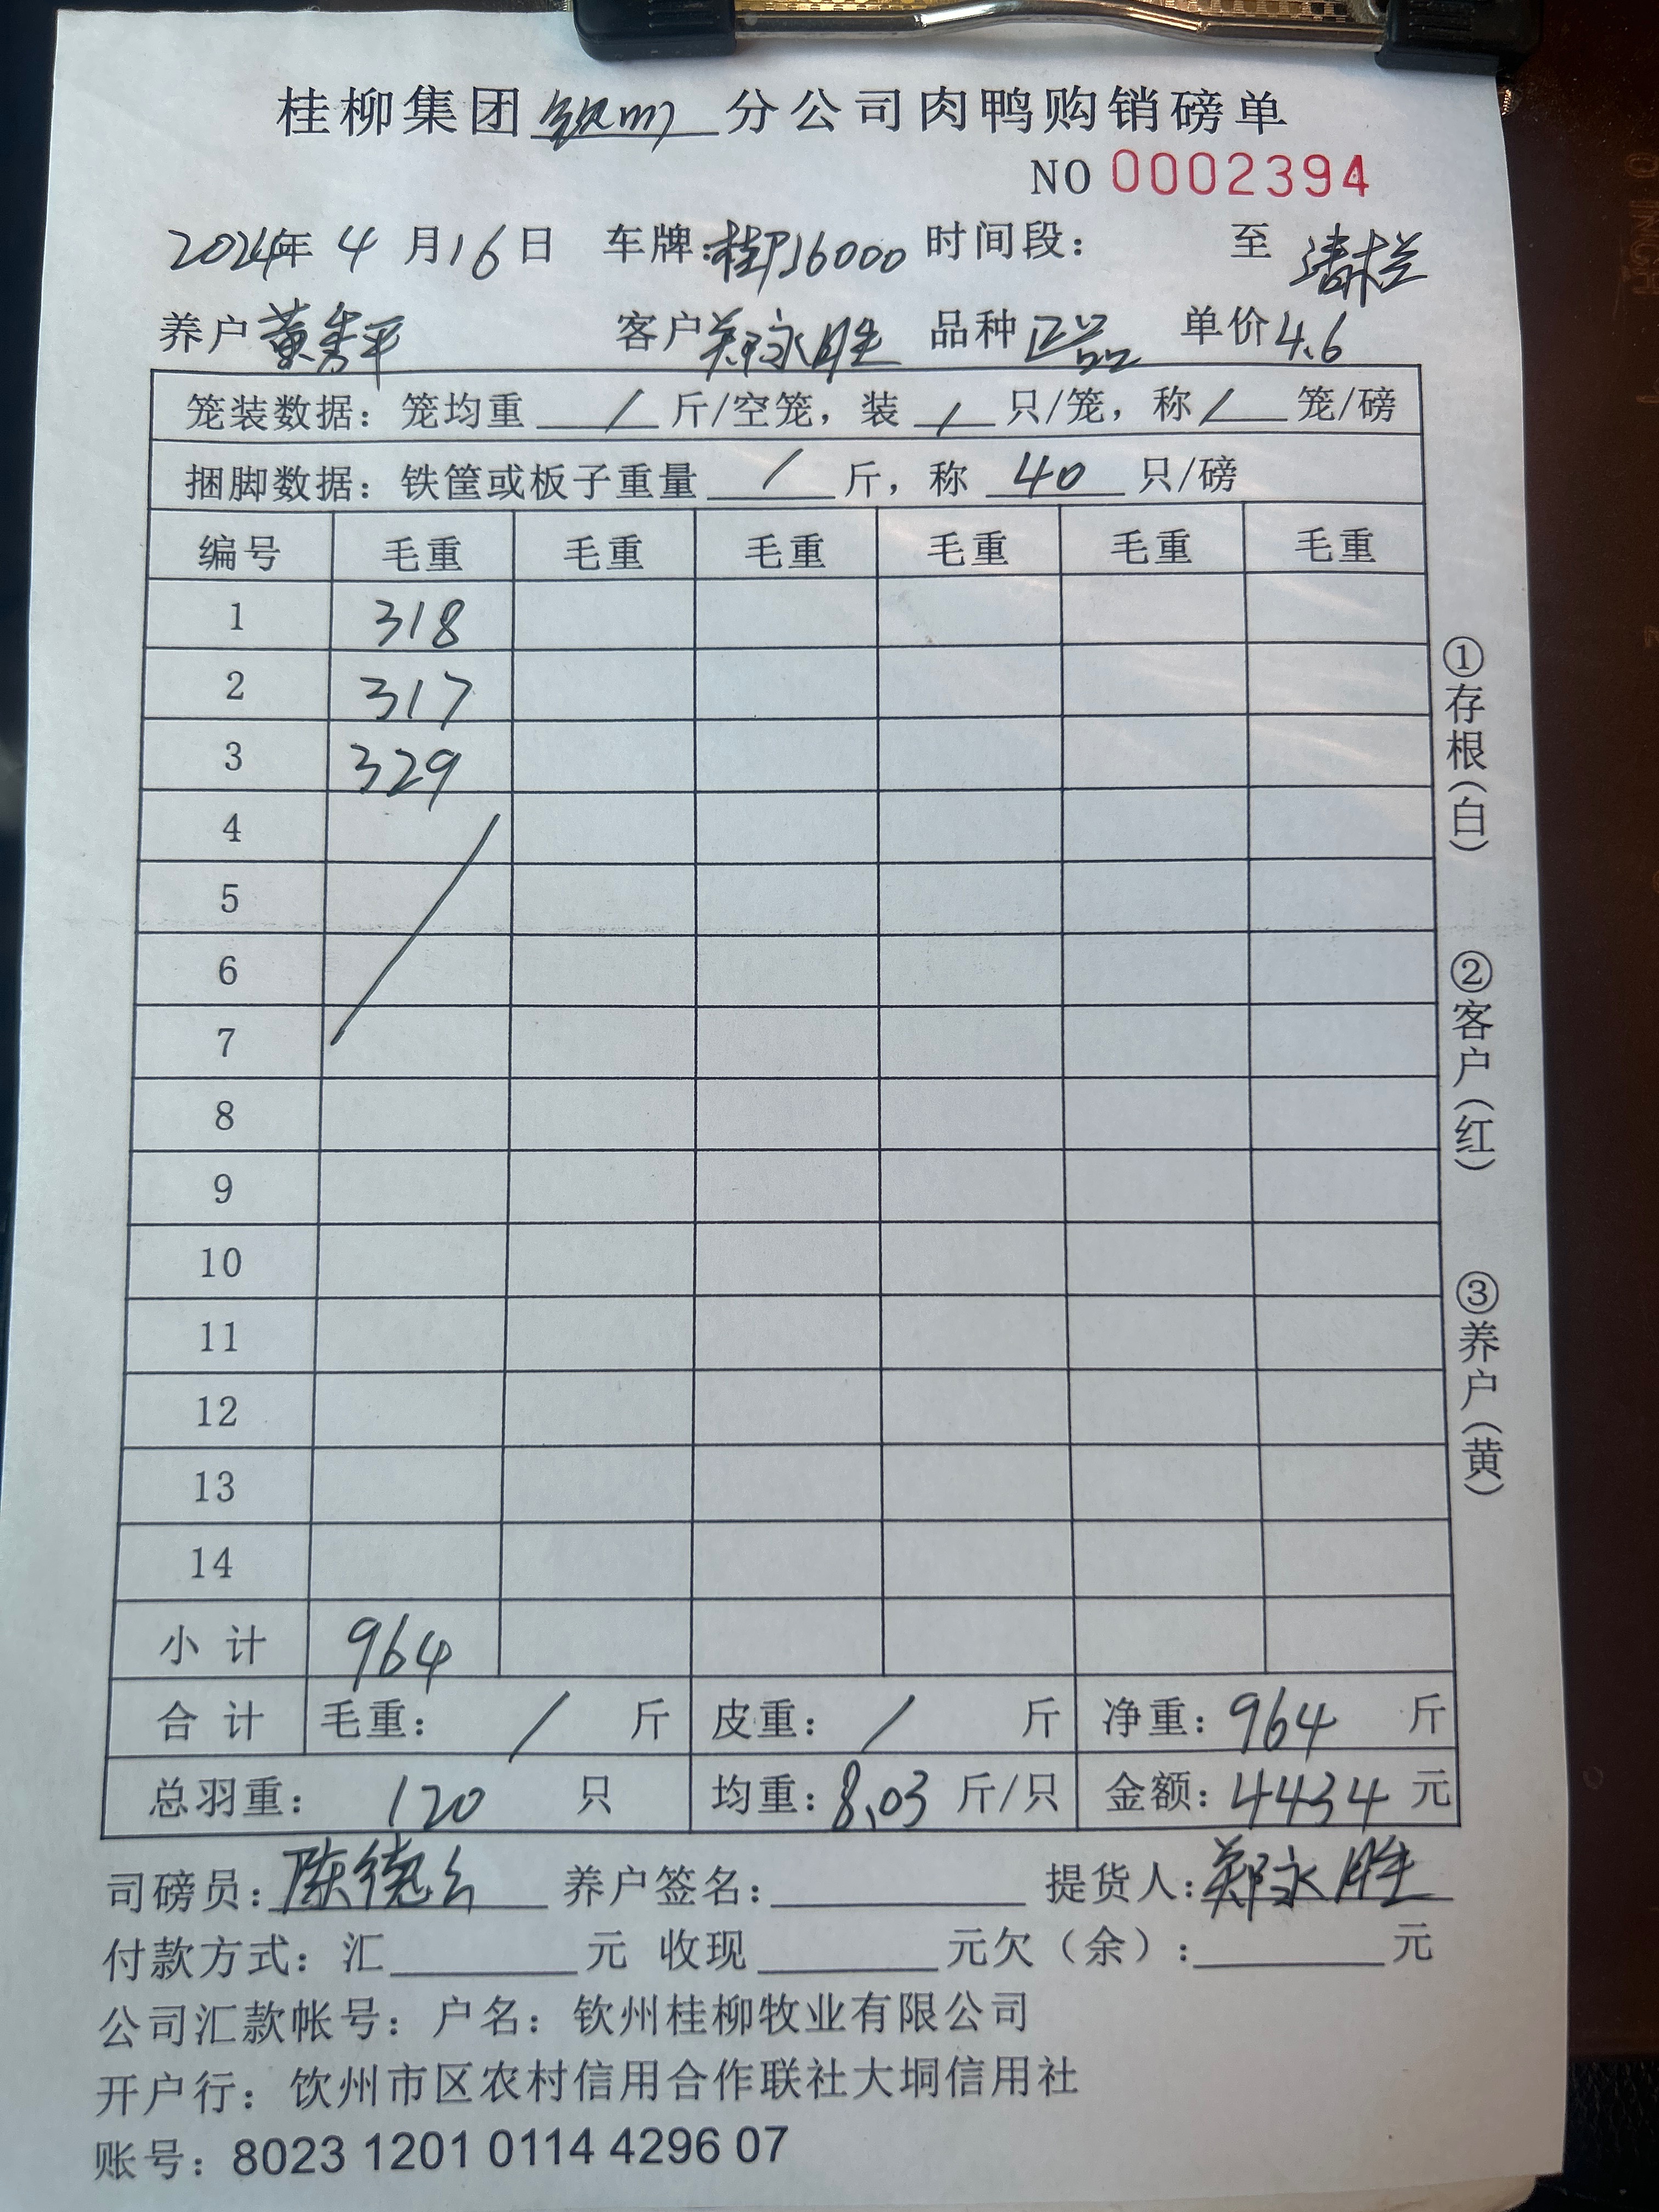 桂柳集团钦州分公司肉鸭购销磅单
NO 0002394
2024年 4 月16日 车牌:桂PJ6000 时间段: 至 清栏
养户黄秀平 客户郑永胜 品种正品 单价4.6
笼装数据: 笼均重 / 斤/空笼, 装 / 只/笼, 称 / 笼/磅
捆脚数据: 铁筐或板子重量 / 斤, 称 40 只/磅
编号 毛重 毛重 毛重 毛重 毛重 毛重
1 318
2 317
3 329
4
5
6
7
8
9
10
11
12
13
14
小计 964
合计 毛重: / 斤 皮重: / 斤 净重: 964 斤
总羽重: 120 只 均重: 8.03 斤/只 金额: 4434 元
司磅员: 陈德 养户签名: 提货人: 郑永胜
付款方式: 汇 元 收现 元欠(余): 元
公司汇款帐号: 户名: 钦州桂柳牧业有限公司
开户行: 钦州市区农村信用合作联社大垌信用社
账号: 8023 1201 0114 4296 07
①存根(白)
②客户(红)
③养户(黄)